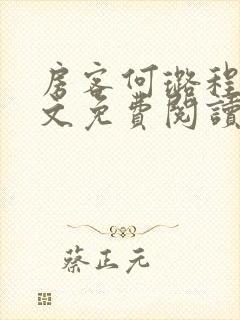 房客何璐程
文免費閱讀
蔡正元